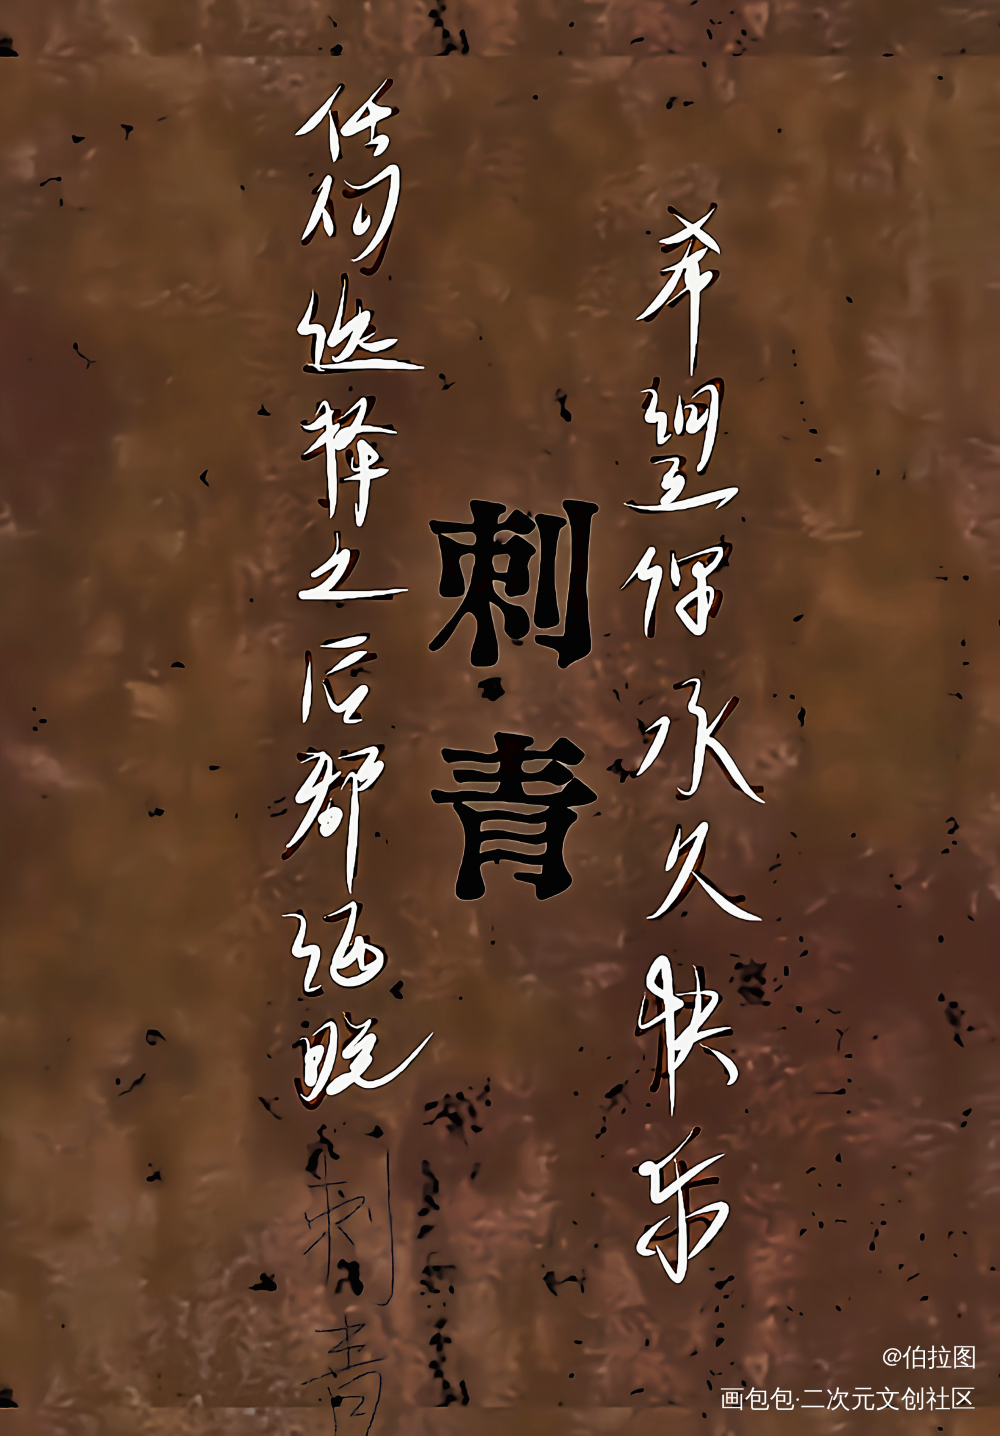 希望你永久快乐
刺青
任何选择之后都偏晚
刺青
@伯拉图
画包包·二次元文创社区